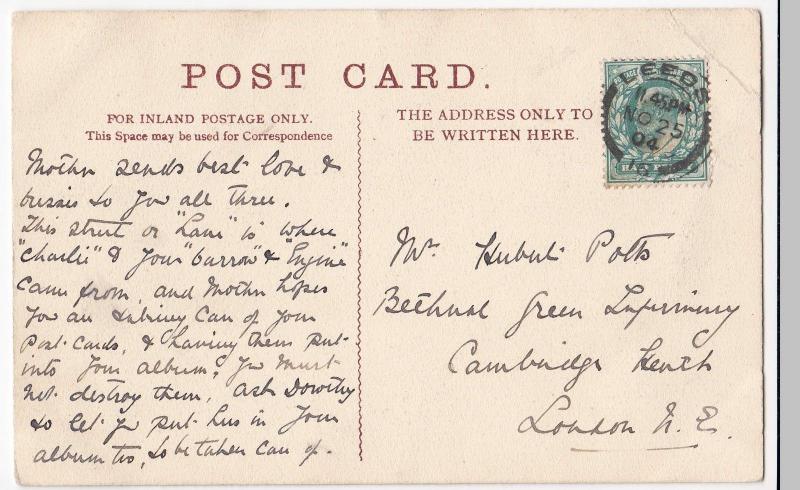 POST CARD.
FOR INLAND POSTAGE ONLY.
This Space may be used for Correspondence
THE ADDRESS ONLY TO
BE WRITTEN HERE.
LEEDS
11.45PM
NO 25
04
Mother sends best love &
to you all three.
This street or "Lane" is where
"Charlie" & your "barrow" & "Engine"
came from, and Mother hopes
you are taking care of your
Post Cards, & having them put
into your album. You must
not destroy them, ask Dorothy
to let you put hers in your
album too, to be taken care of.
Mr. Hubert Potts
Bethnal Green Infirmary
Cambridge Heath
London N.E.